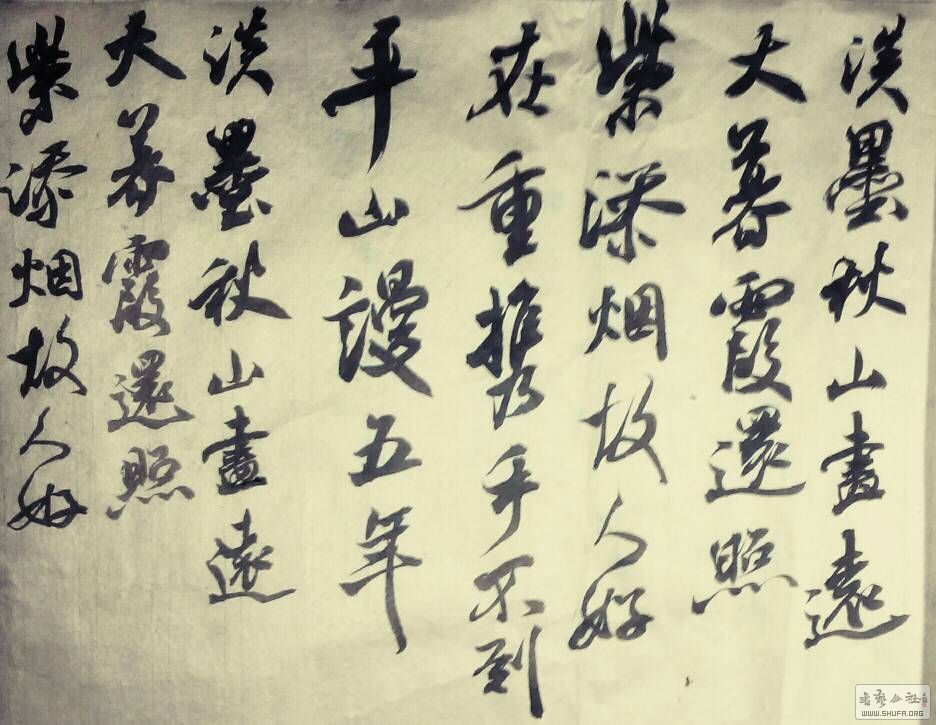 淡墨秋山畫遠
天暮霞還照
紫添烟故人好
在重携手不到
平山謾五年
淡墨秋山畫遠
天暮霞還照
紫添烟故人好
书艺公社
WWW.SHUFA.ORG